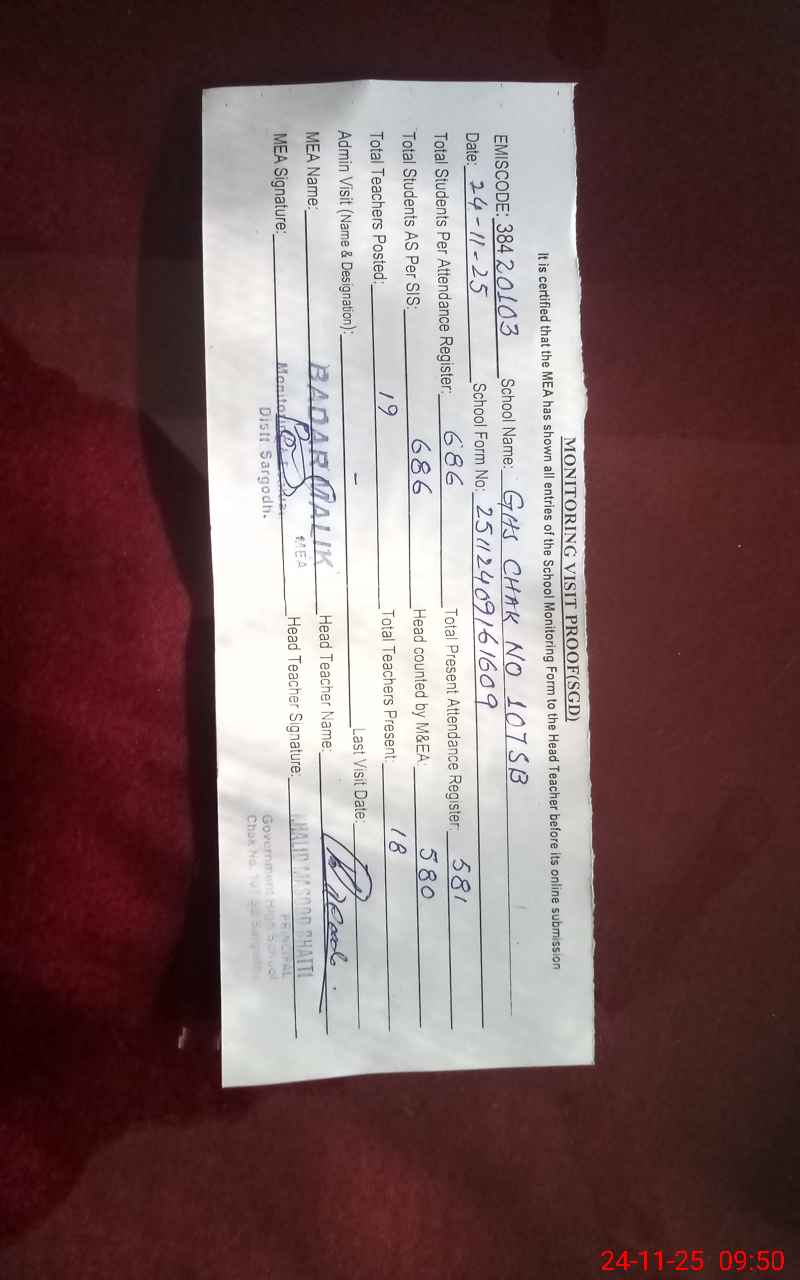 MONITORING VISIT PROOF(SGD)
It is certified that the MEA has shown all entries of the School Monitoring Form to the Head Teacher before its online submission
EMISCODE: 38420103 School Name: GHS CHAK NO 107SB
Date: 24-11-25 School Form No: 25112409161609
Total Students Per Attendance Register: 686 Total Present Attendance Register: 581
Total Students AS Per SIS: 686 Head counted by M&EA: 580
Total Teachers Posted: 19 Total Teachers Present: 18
Admin Visit (Name & Designation): - Last Visit Date:
MEA Name: BADAR MALIK MEA Head Teacher Name:
MEA Signature: Distt Sargodh. Head Teacher Signature:
KHALID MASOOD BHATTI
PRINCIPAL
Government High School
Chak No. 107
24-11-25 09:50